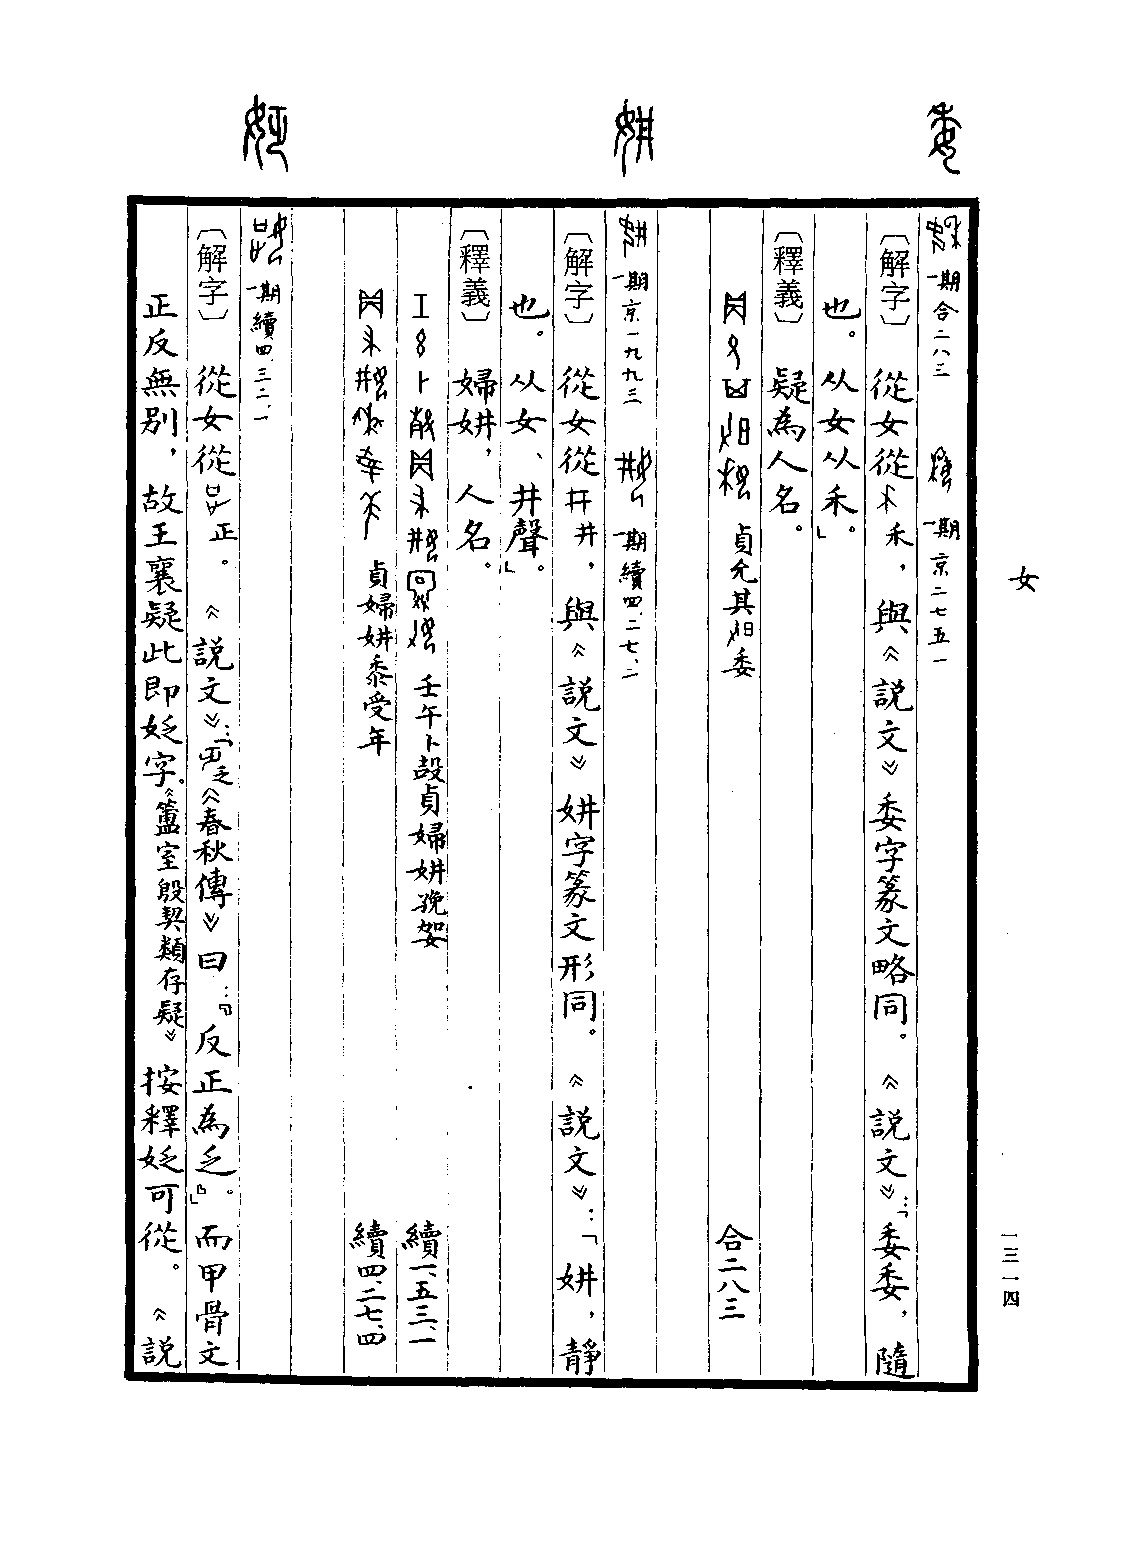 女
一三一四
委
一期合二八三　一期京二七五一
〔解字〕從女從禾，與《說文》委字篆文略同。《說文》：「委委，隨
也。从女从禾。」
〔釋義〕疑為人名。
貞允其委　合二八三
妌
一期京一九九三　一期續四.二七.二
〔解字〕從女從井，與《說文》妌字篆文形同。《說文》：「妌，靜
也。从女、井聲。」
〔釋義〕婦妌，人名。
壬午卜㱿貞婦妌娩㛅　續一.五三.一
貞婦妌黍受年　續四.二七.四
一期續四.三二.一
〔解字〕從女從正。《說文》：「乏《春秋傳》曰：『反正為乏』。」而甲骨文
正反無別，故王襄疑此即姂字。《簠室殷契類存疑》按釋姂可從。《說